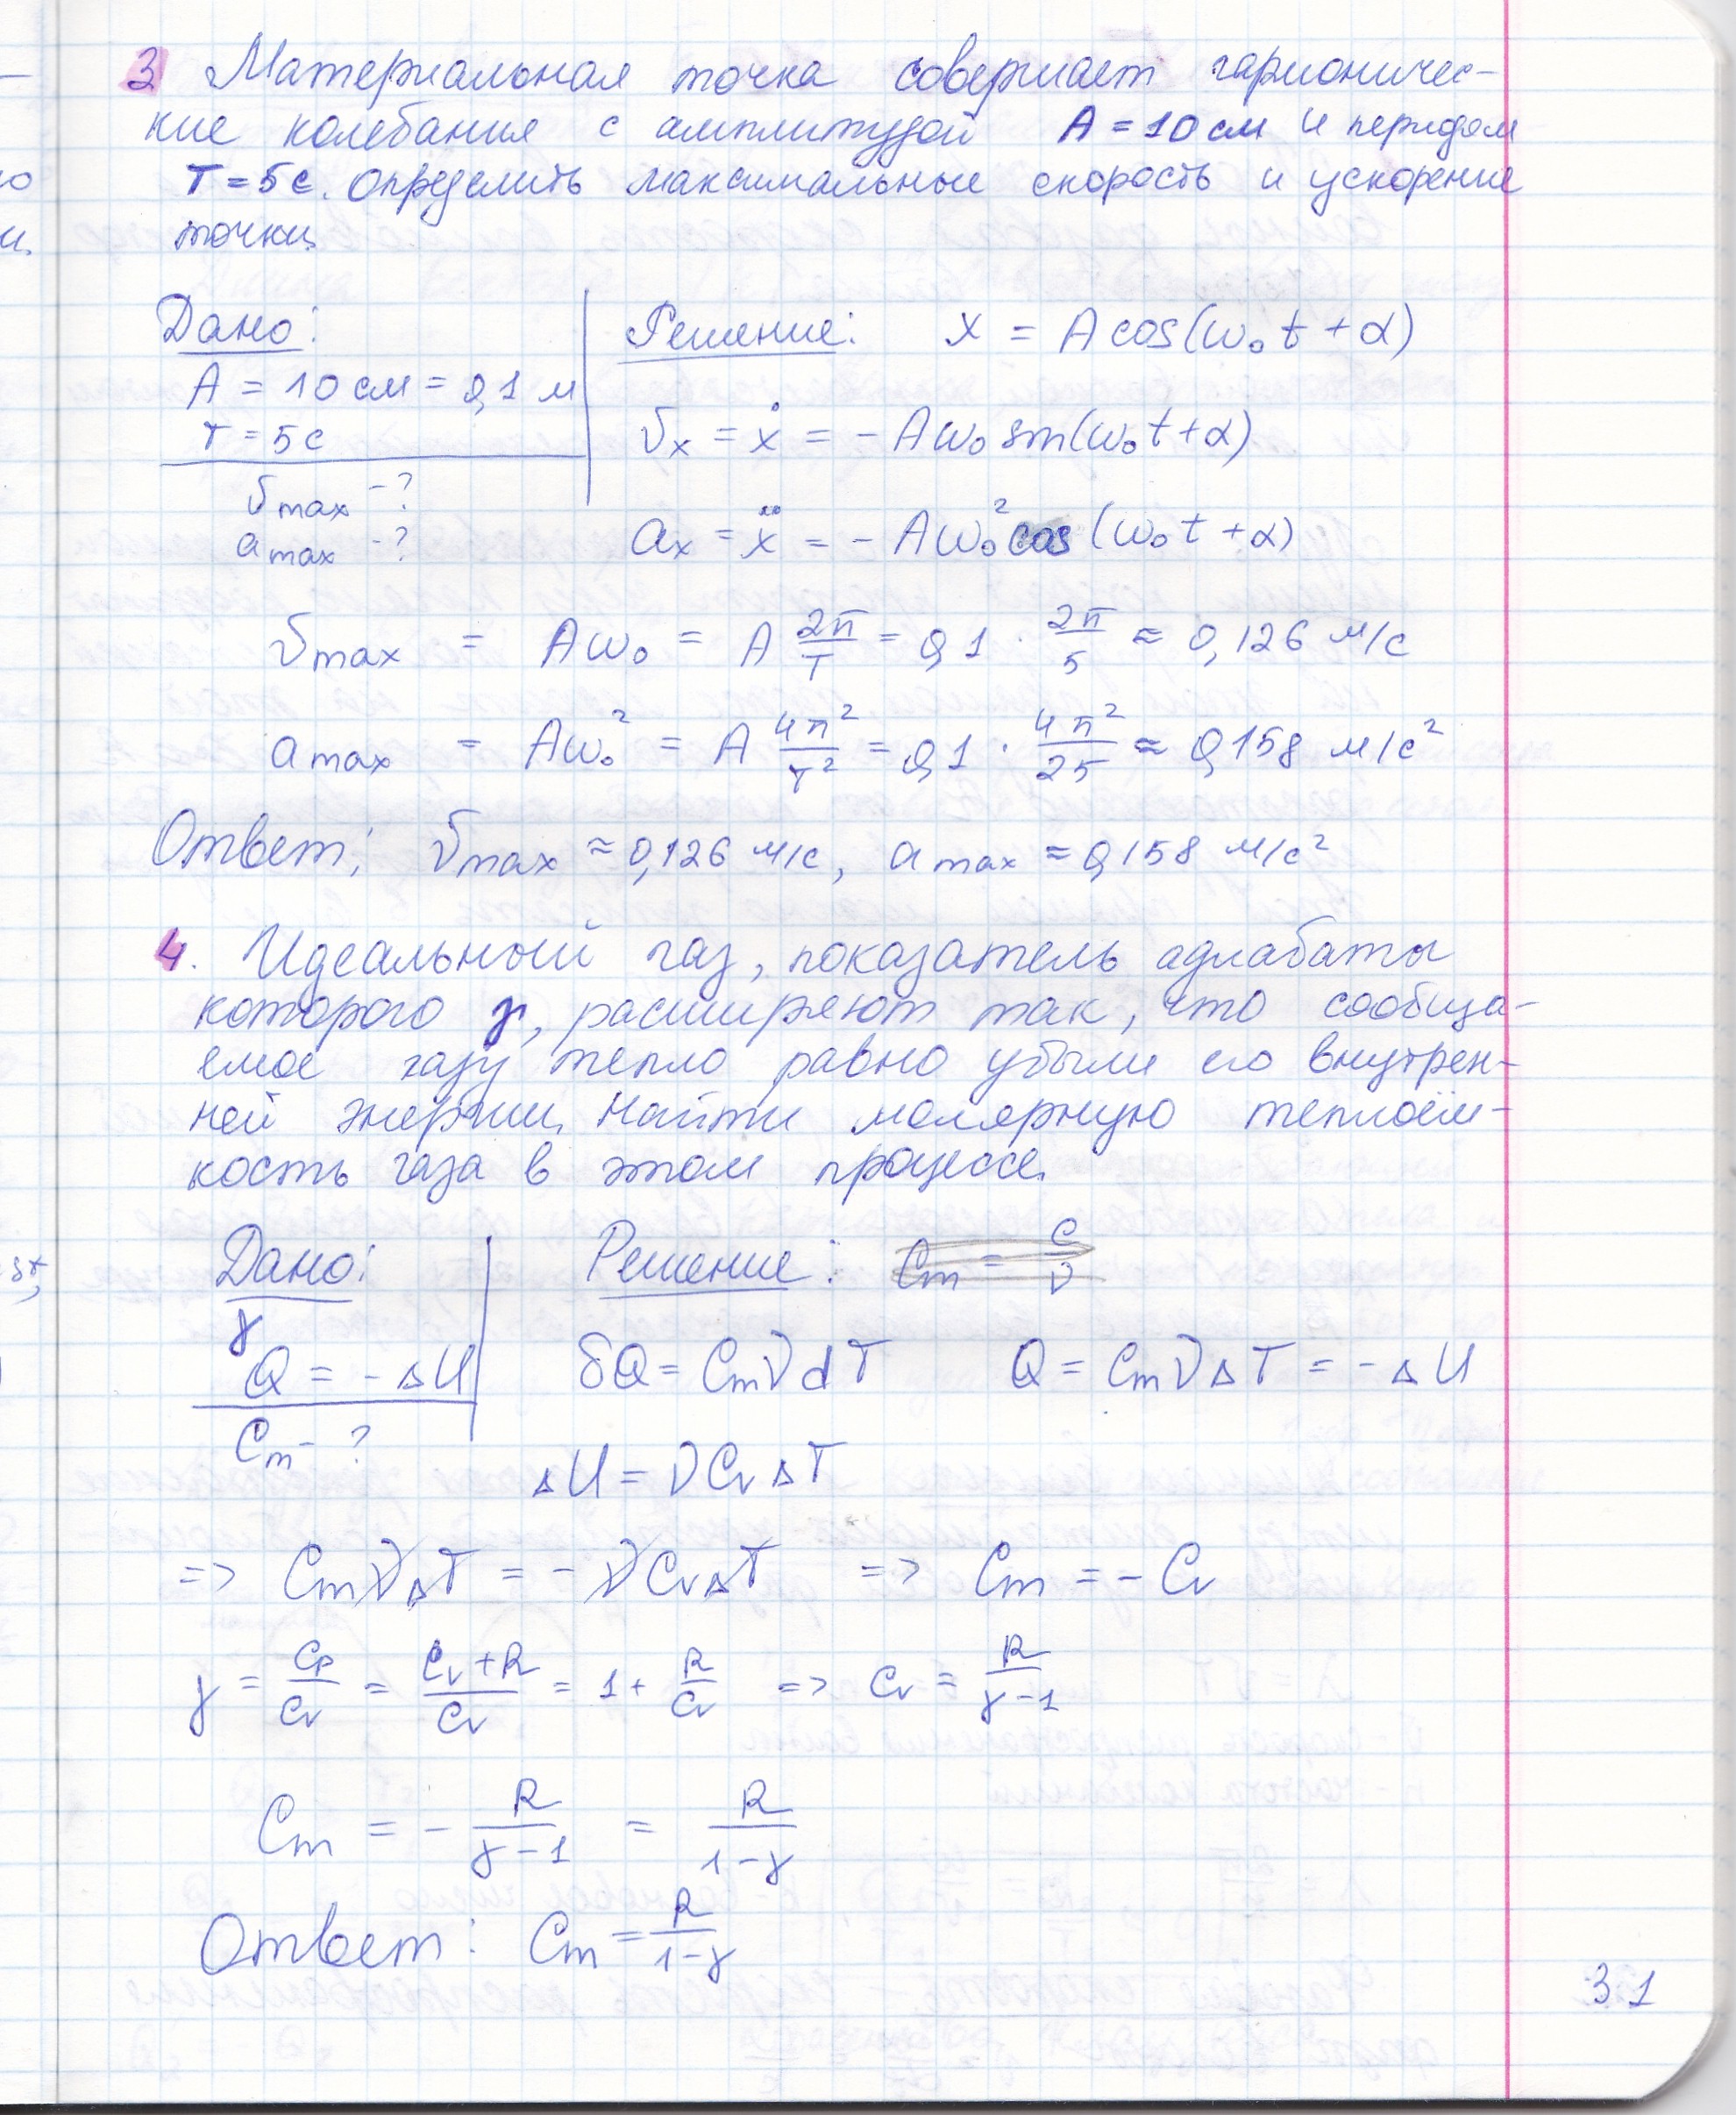 3 Материальная точка совершает гармоничес-
кие колебания с амплитудой A = 10 см и периодом
T = 5 с. Определить максимальные скорость и ускорение
точки.
Дано:
A = 10 см = 0,1 м
T = 5 с
υmax - ?
amax - ?
Решение: x = A cos(ω₀t + α)
υx = ẋ = - Aω₀ sin(ω₀t + α)
ax = ẍ = - Aω₀² cos(ω₀t + α)
υmax = Aω₀ = A 2π/T = 0,1 · 2π/5 ≈ 0,126 м/с
amax = Aω₀² = A 4π²/T² = 0,1 · 4π²/25 ≈ 0,158 м/с²
Ответ: υmax ≈ 0,126 м/с, amax ≈ 0,158 м/с²
4. Идеальный газ, показатель адиабаты
которого γ, расширяют так, что сообща-
емое газу тепло равно убыли его внутрен-
ней энергии. Найти молярную теплоём-
кость газа в этом процессе.
Дано:
γ
Q = - ΔU
Cm - ?
Решение: Cm = C/ν
δQ = CmνdT Q = CmνΔT = - ΔU
ΔU = νCvΔT
=> CmνΔT = - νCvΔT => Cm = - Cv
γ = Cp/Cv = (Cv + R)/Cv = 1 + R/Cv => Cv = R/(γ - 1)
Cm = - R/(γ - 1) = R/(1 - γ)
Ответ: Cm = R/(1 - γ)
31